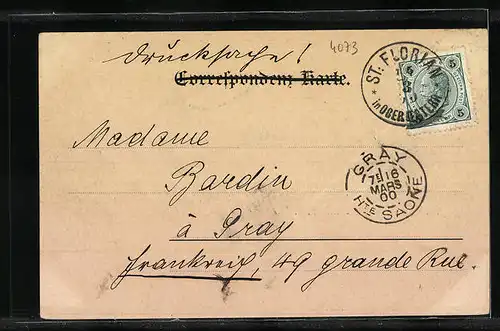 Drucksache!
4073
Correspondenz-Karte.
ST. FLORIAN
in OBER
5 5
Madame
Bardin
GRAY
16
MARS
00
HTE SAÔNE
à Gray
Frankreich, 49 grande Rue.